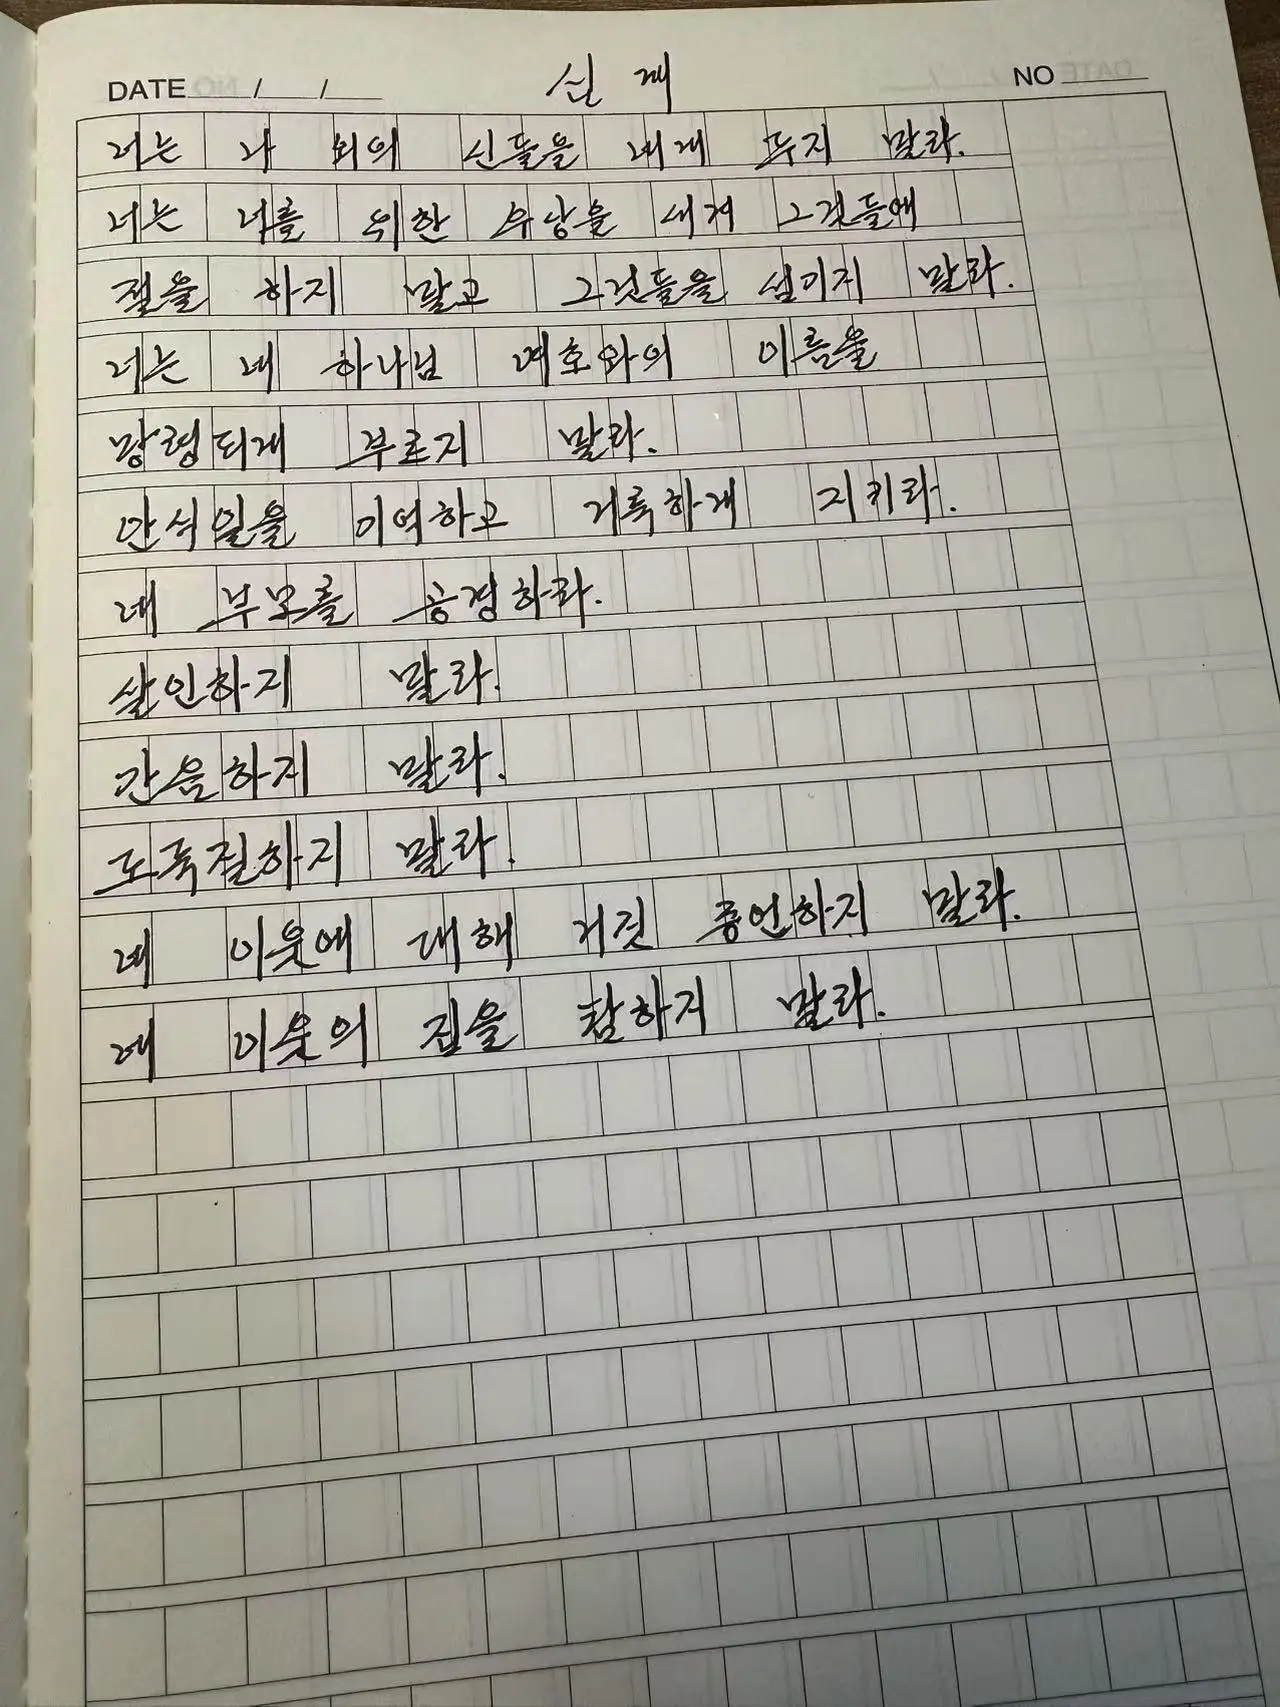 DATE / / 실계 NO
너는 나 외의 신들을 네게 두지 말라.
너는 너를 위한 우상을 새겨 그것들에
절을 하지 말고 그것들을 섬기지 말라.
너는 네 하나님 여호와의 이름을
망령되게 부르지 말라.
안식일을 기억하고 거룩하게 지키라.
네 부모를 공경하라.
살인하지 말라.
간음하지 말라.
도둑질하지 말라.
네 이웃에 대해 거짓 증언하지 말라.
네 이웃의 집을 탐하지 말라.